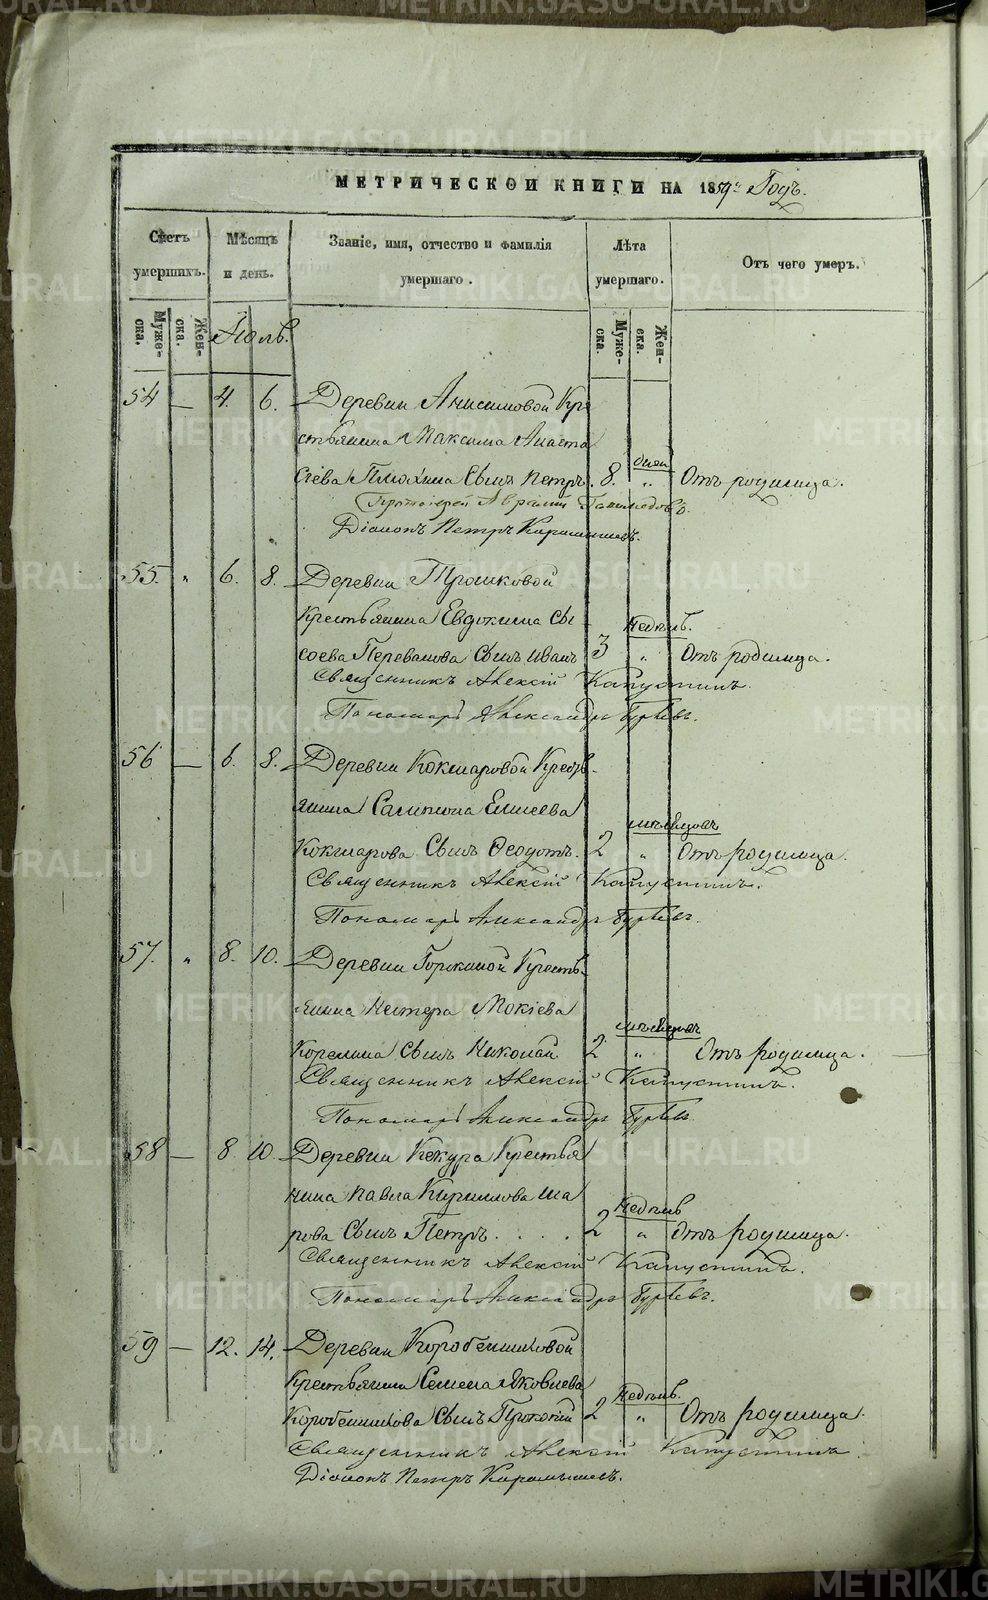 METRIKI.GASO-URAL.RU
МЕТРИЧЕСКОЙ КНИГИ НА 1859й Годъ.
Счетъ умершихъ.
Мѣсяцъ и день.
Званіе, имя, отчество и фамилія умершаго.
Лѣта умершаго.
Отъ чего умеръ.
Муже-ска.
Жен-ска.
Іюль.
Муже-ска.
Жен-ска.
54 — 4. 6. Деревни Анисимовой Кре
стьянина Максима Анаста
сіева сынъ Петръ. 8. дней „ Отъ родимца.
Протоіерей Авраамій
Діаконъ Петръ Карамышевъ.
55. „ 6. 8. Деревни Трошковой
Крестьянина Евдокима Сы
соева Перевалова сынъ Иванъ 3 недѣль. „ Отъ родимца.
Священникъ Алексій Капустинъ.
Пономарь Александръ
56 — 6. 8. Деревни Кокшаровой Крестъ-
янина Сампсона Елисеева
Кокшарова Сынъ Ѳеодотъ. 2 мѣсяцовъ „ Отъ родимца.
Священникъ Алексій Капустинъ.
Пономарь Александръ
57. „ 8. 10. Деревни Горскиной Кресть-
янина Нестера Мокіева
Корелина Сынъ Николай 2 мѣсяцовъ „ Отъ родимца.
Священникъ Алексій Капустинъ.
Пономарь Александръ
58 — 8 10. Деревни Кекура Крестья
нина Павла Кириллова Ша
рова Сынъ Петръ..... 2 недѣль „ Отъ родимца.
Священникъ Алексій Капустинъ.
Пономарь Александръ
59 — 12. 14. Деревни Коробейниковой
Крестьянина Семена Яковлева
Коробейникова Сынъ Прокопій 2 недѣль. „ Отъ родимца.
Священникъ Алексій Капустинъ
Діаконъ Петръ Карамышевъ.